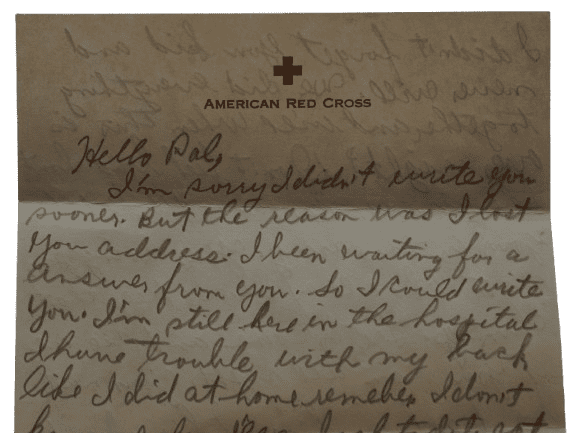 AMERICAN RED CROSS
Hello Pal,
I'm sorry I didn't write you
sooner. But the reason was I lost
you address. I been waiting for a
answer from you. So I could write
you. I'm still here in the hospital
I have trouble with my back
like I did at home remeber I don't